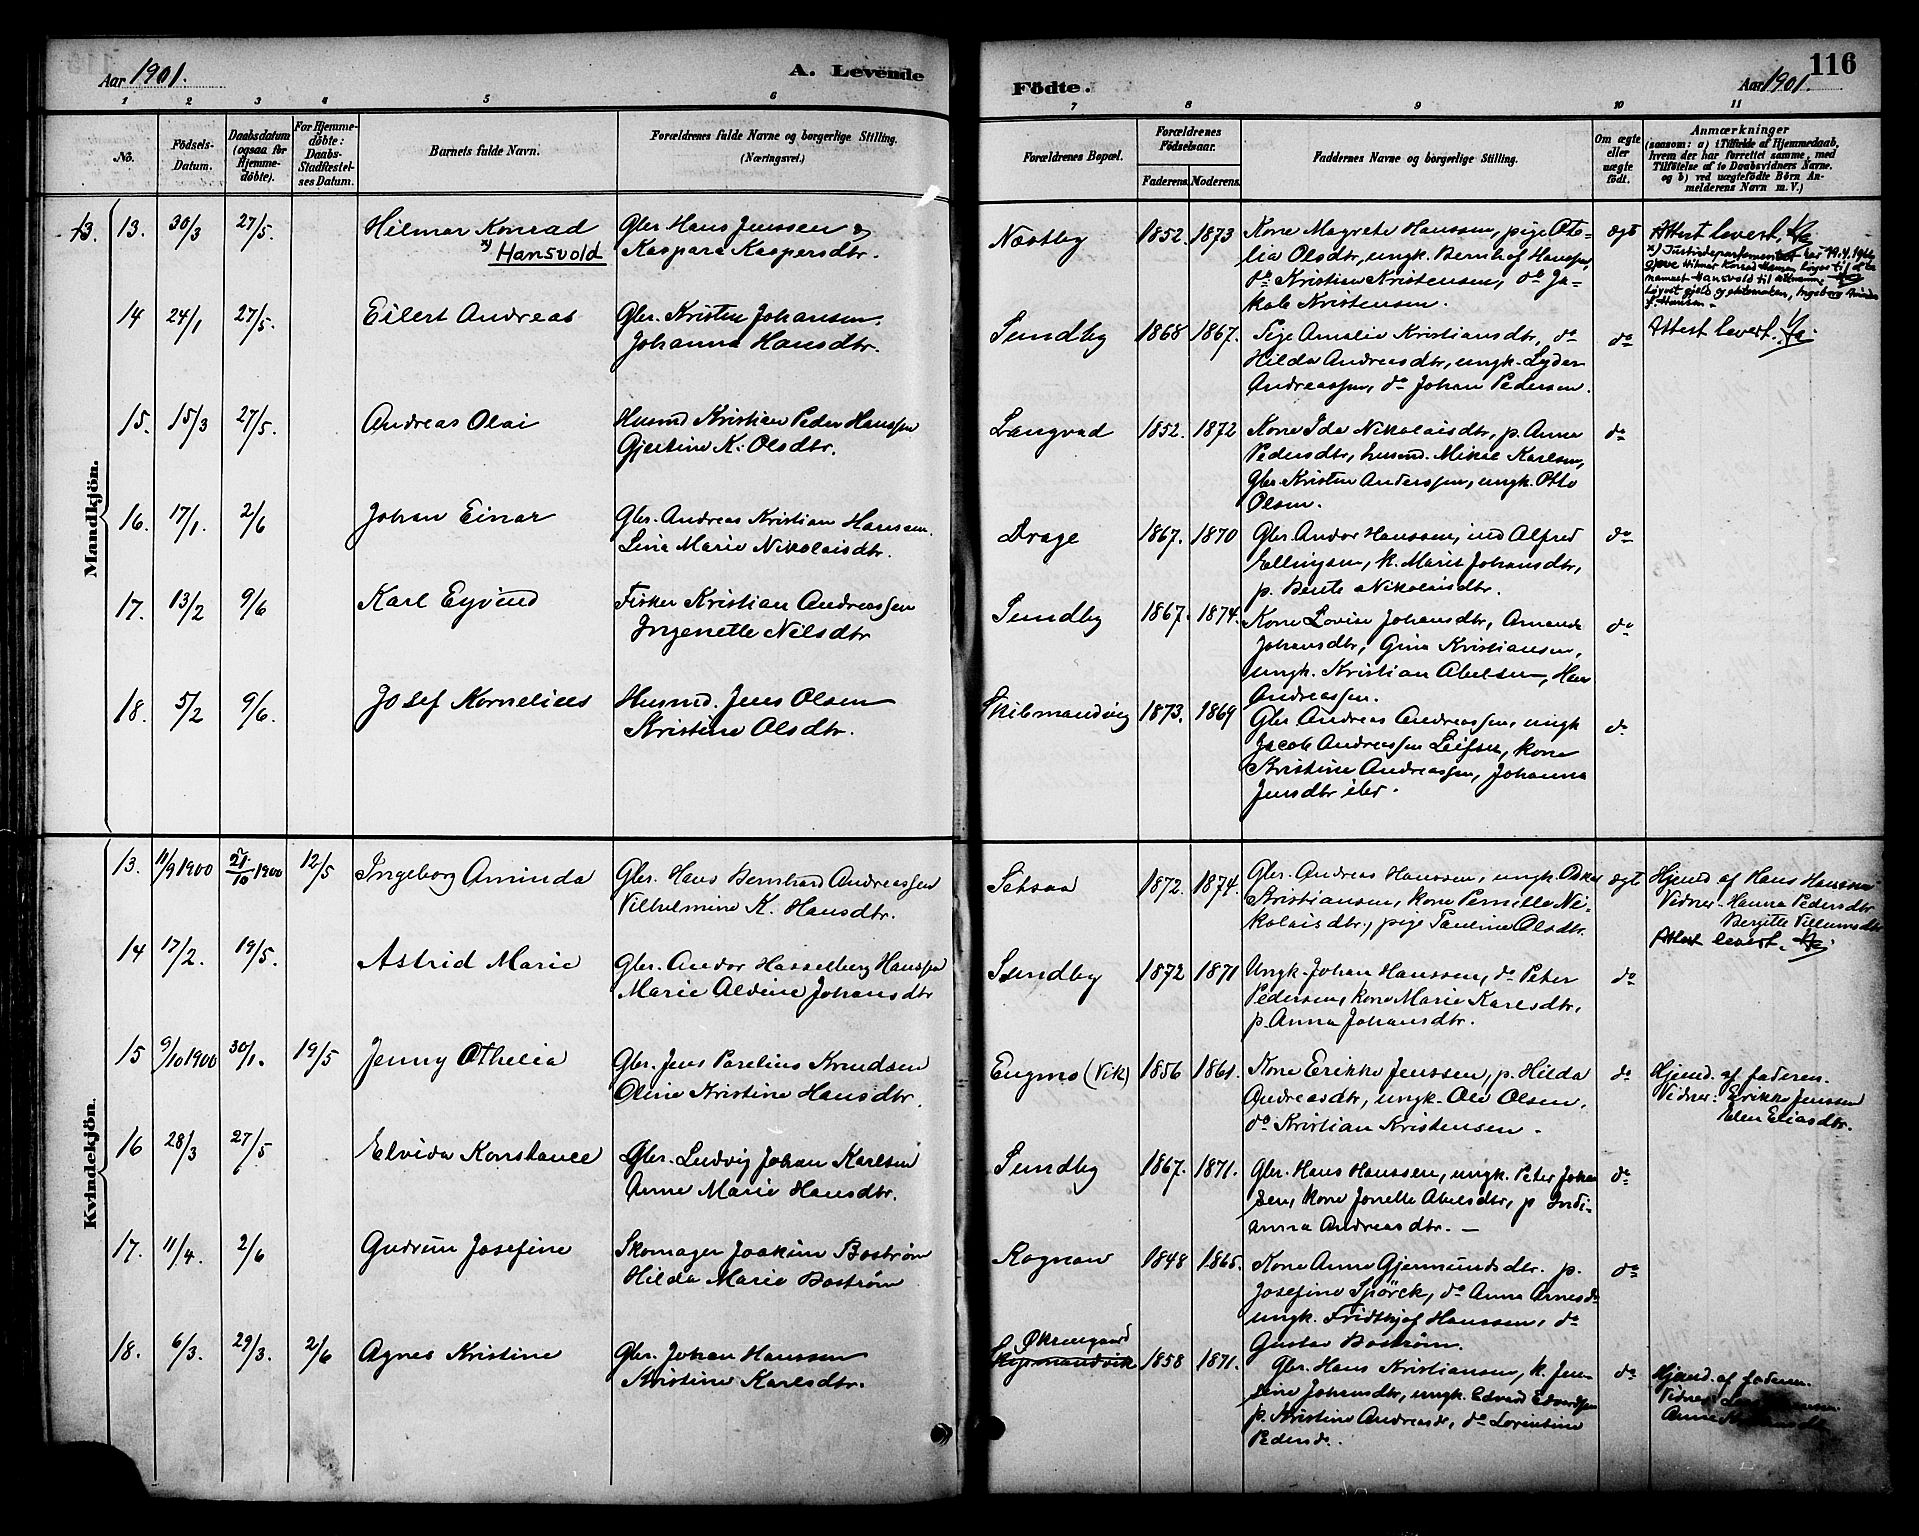 Aar 1901. A. Levende
1 2 3 4 5 6
No. Födsels-Datum. Daabsdatum (ogsaa for Hjemme-döbte). For Hjemme-döbte: Daabs-Stadfæstel-ses Datum. Barnets fulde Navn. Forældrenes fulde Navne og borgerlige Stilling. (Næringsvei.)
Mandkjön.
13. 13. 30/3 27/5. Hilmar Konrad Gbr. Hans Jenssen &
x) Hansvold Kaspara Kaspersdtr.
14 24/1 27/5. Eilert Andreas Gbr. Kristen Johansen.
Johanna Hansdtr.
15. 15/3 27/5. Andreas Olai Husmd Kristian Peder Hanssen
Gjertine K. Olsdtr.
16. 17/1. 2/6 Johan Einar Gbr. Andreas Kristian Hansen.
Lina Marie Nikolaisdtr.
17. 13/2 9/6 Karl Eyvind Fisker Kristian Andreassen
Ingenette Nilsdtr
18. 5/2 9/6. Josef Kornelius Husmd. Jens Olsen
Kristine Olsdtr.
Kvindekjön.
13. 11/9 1900 21/10 1900 12/5 Ingeborg Aminda Gbr. Hans Bernhard Andreassen
Vilhelmine K. Hansdtr.
14 17/2. 19/5. Astrid Marie Gbr. Andor Hasselberg Hanssen
Marie Aldine Johansdtr
15 9/10 1900 30/1. 19/5 Jenny Othelia Gbr. Jens Parelius Knudsen
Oline Kristine Hansdtr.
16 28/3 27/5 Elvida Konstance Gbr. Ludvig Johan Karlsen
Anne Marie Hansdtr.
17. 11/4. 2/6 Gudrun Josefine Skomager Joakim Boström
Hilda Marie Boström
18. 6/3. 29/3. 2/6 Agnes Kristine Gbr. Johan Hanssen
Kristine Karlsdtr.
Födte. Aar 1901. 116
7 8 9 10 11
Forældrenes Bopæl. Forældrenes Födselsaar. Faderens. Moderens. Faddernes Navne og borgerlige Stilling. Om ægte eller uægte födt. Anmærkninger
(saasom: a) i Tilfælde af Hjemmedaab, hvem der har forrettet samme, med Tilföielse af to Daabsvidners Navne. og b) ved uægtefödte Börn Anmelderens Navn m. V.)
Næstby 1852. 1873 Kone Magrete Hanssen, pige Ote- ægt Attest levert.
lia Olsdtr, ungk. Bernhof Hanssen, x) Justisdepartementet har 19.4.1966
do Kristian Kristensen, do Ja-
kob Kristensen.
Sundby 1868 1867. Pige Amalie Kristiansdtr, do do Attest levert.
Hilda Andreasdtr, ungk. Lyder
Andreassen, do Johan Pedersen.
Langvad 1852. 1872 Kone Ida Nikolaisdtr, p. Anna do
Pedersdtr, husmd. Mikal Karlsen,
Gbr. Kristen Anderssen, ungk. Otto
Olsen.
Drage 1867. 1870 Gbr. Andor Hanssen, ind Alfred do
Ellingsen, k. Marit Johansdtr,
p. Berite Nikolaisdtr.
Sundby 1867. 1874. Kone Lovise Johansdtr, Amanda do
Johansdtr, Gina Kristiansen,
ungk. Kristian Abelsen, Hans
Andreassen.
Skibmandvig 1873. 1869 Gbr Andreas Andreassen, ungk do
Jacob Andreassen Leifsen, kone
Kristine Andreassen, Johanna
Jensdtr ibr.
Setsaa 1872. 1874. Gbr. Andreas Hanssen, ungk. Oskar ægt Hjemd af Hans Hanssen
Kristiansen, kone Pernille Ni- Vidner. Hanna Pedersdtr
kolaisdtr, pige Pauline Olsdtr. Bergitte Villumsdtr
Attest levert.
Sundby 1872 1871 Ungk. Johan Hanssen, do Peter do
Pedersen, kone Marie Karlsdtr,
p. Anna Johansdtr.
Engmo (Vik) 1856 1861. Kone Erikke Jenssen, p. Hilda do Hjemd. af faderen.
Andreasdtr, ungk. Ole Olsen, Vidner: Erikke Jenssen
do Kristian Kristensen. Elen Eliasdtr.
Sundby 1867. 1871. Gbr. Hans Hanssen, ungk. Peter Johan do
sen, kone Jonette Abelsdtr, p Indi-
anna Andreasdtr. —
Rognan 1848 1865. Kone Anne Gjermundsdtr. p. do
Josefine Spörck, do Anna Arnesdr
ungk. Fridthjof Hanssen, do
Gustav Boström.
Øksengaard
Skipmandvik 1858 1871. Gbr. Hans Kristiansen, k. Jen- do Hjemd. af faderen.
sine Johansdtr, ungk. Edvard Edvardsen Vidner
p. Kristine Andreasdr, do Lorentine Anne
Pedersdr.